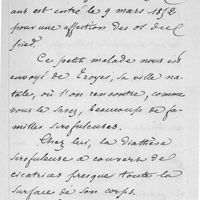 ans est entré le 9 mars 1852
pour une affection des os du
pied.
Ce petit malade nous est
envoyé de Troyes, sa ville na-
tale, où l'on rencontre, comme
vous le savez, beaucoup de fa-
milles scrofuleuses.
Chez lui, la diathèse
scrofuleuse a couvert de
cicatrices presque toute la
surface de son corps.